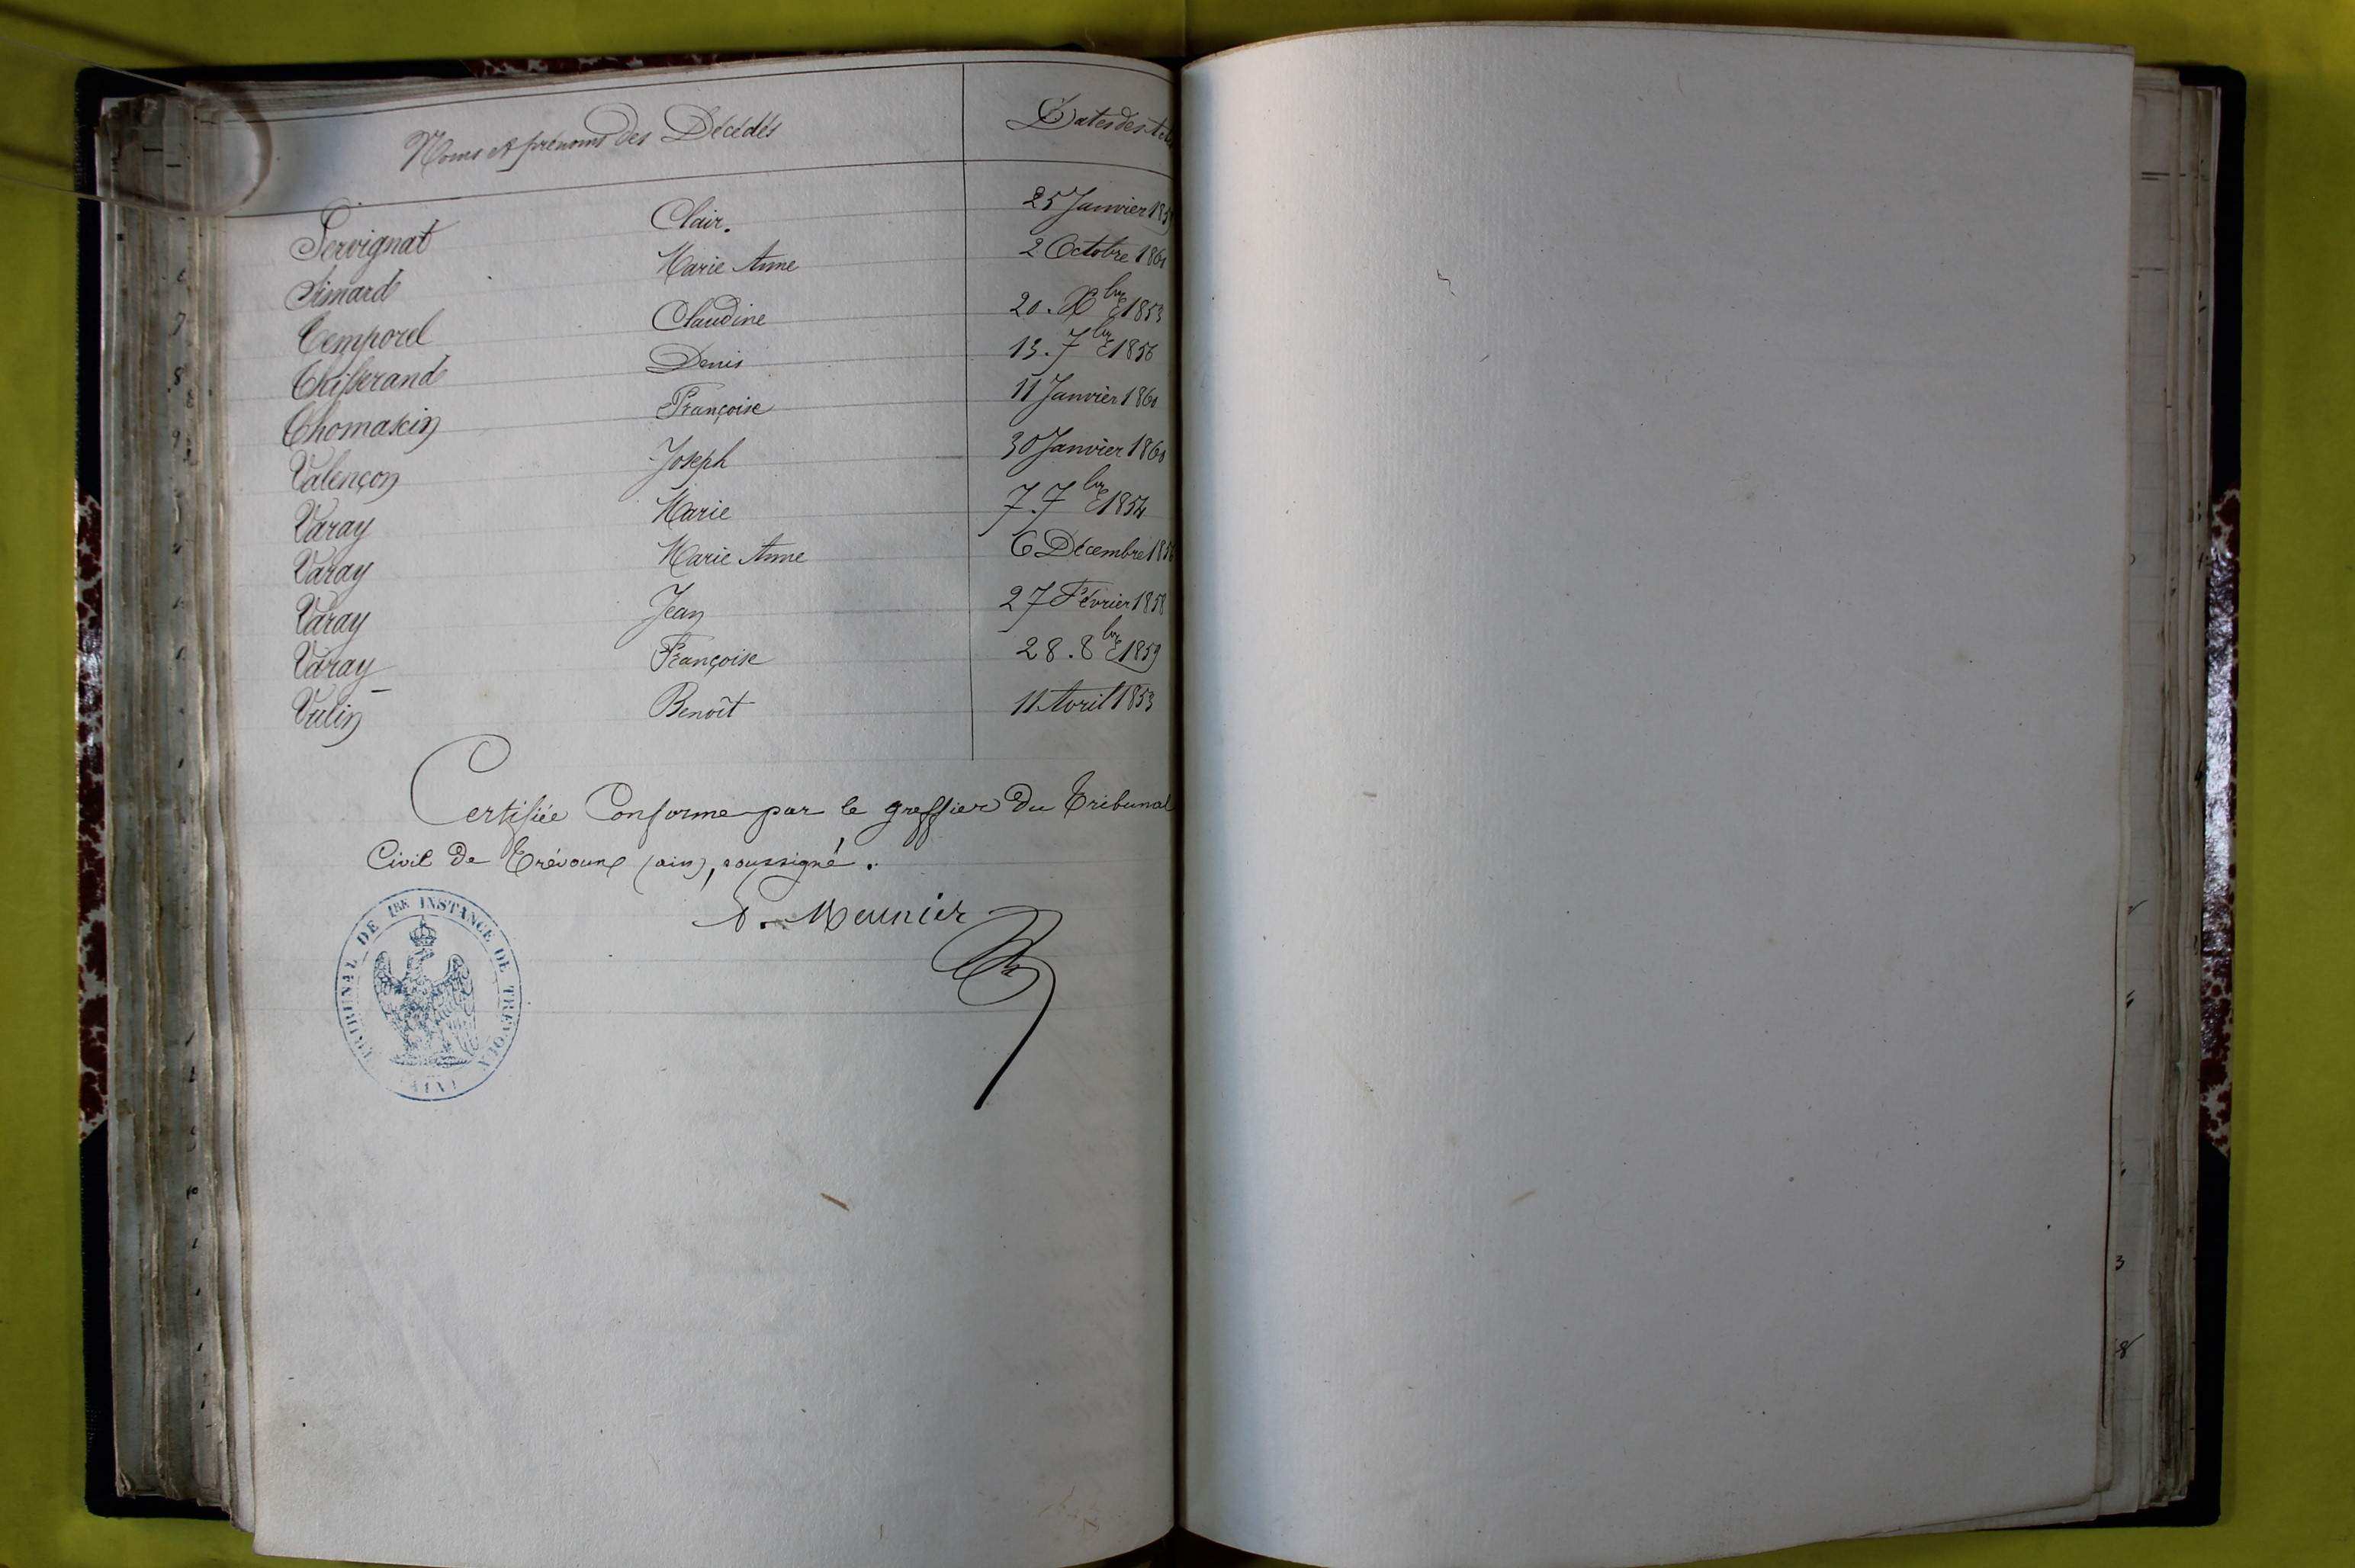 Noms et prénoms des Décédés Dates des Actes
Servignat Clair. 25 Janvier
Simard Marie Anne 2 Octobre 1860
Temporel Claudine 20. Xbre 1853
Thiberand Denis 13. 7bre 1856
Thomassin Françoise 11 Janvier 1860
Valençon Joseph 30 Janvier 1860
Varay Marie 7. 7bre 1854
Varay Marie Anne 6 Décembre
Varay Jean 27 Février 1858
Varay Françoise 28. 8bre 1859
Vulin Benoît 11 Avril 1853
Certifiée Conforme par le greffier du Tribunal
Civil de Trévoux (ain), soussigné.
Meunier
TRIBUNAL DE 1RE INSTANCE DE TREVOUX
(AIN)